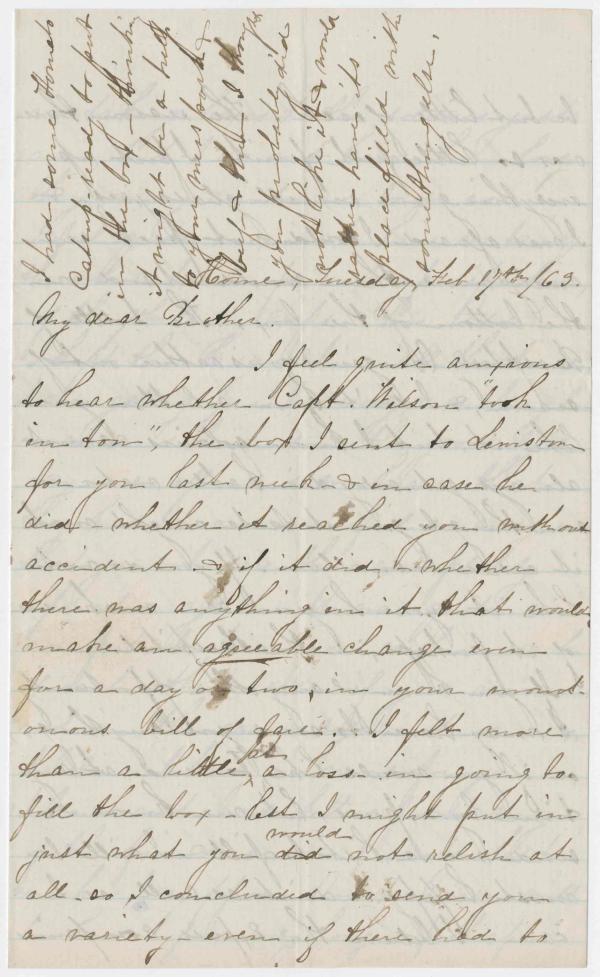 I had some Tomato
Catsup ready to put
in the box - thinking
it might be a help
to your mess pork &
beef & then I thought
you probably did
not like it & would
rather have its
place filled with
something else.
Home, Tuesday, Feb 17th/63.
My dear Brother.
I feel quite anxious
to hear whether Capt. Wilson "took
in tow", the box I sent to Lewiston
for you last week - & in case he
did - whether it reached you without
accident - & if it did - whether
there was anything in it that would
make an agreeable change even
for a day or two, in your monot-
onous bill of fare. I felt more
than a little at a loss in going to
fill the box - lest I might put in
just what you did would not relish at
all - so I concluded to send you
a variety - even if there had to